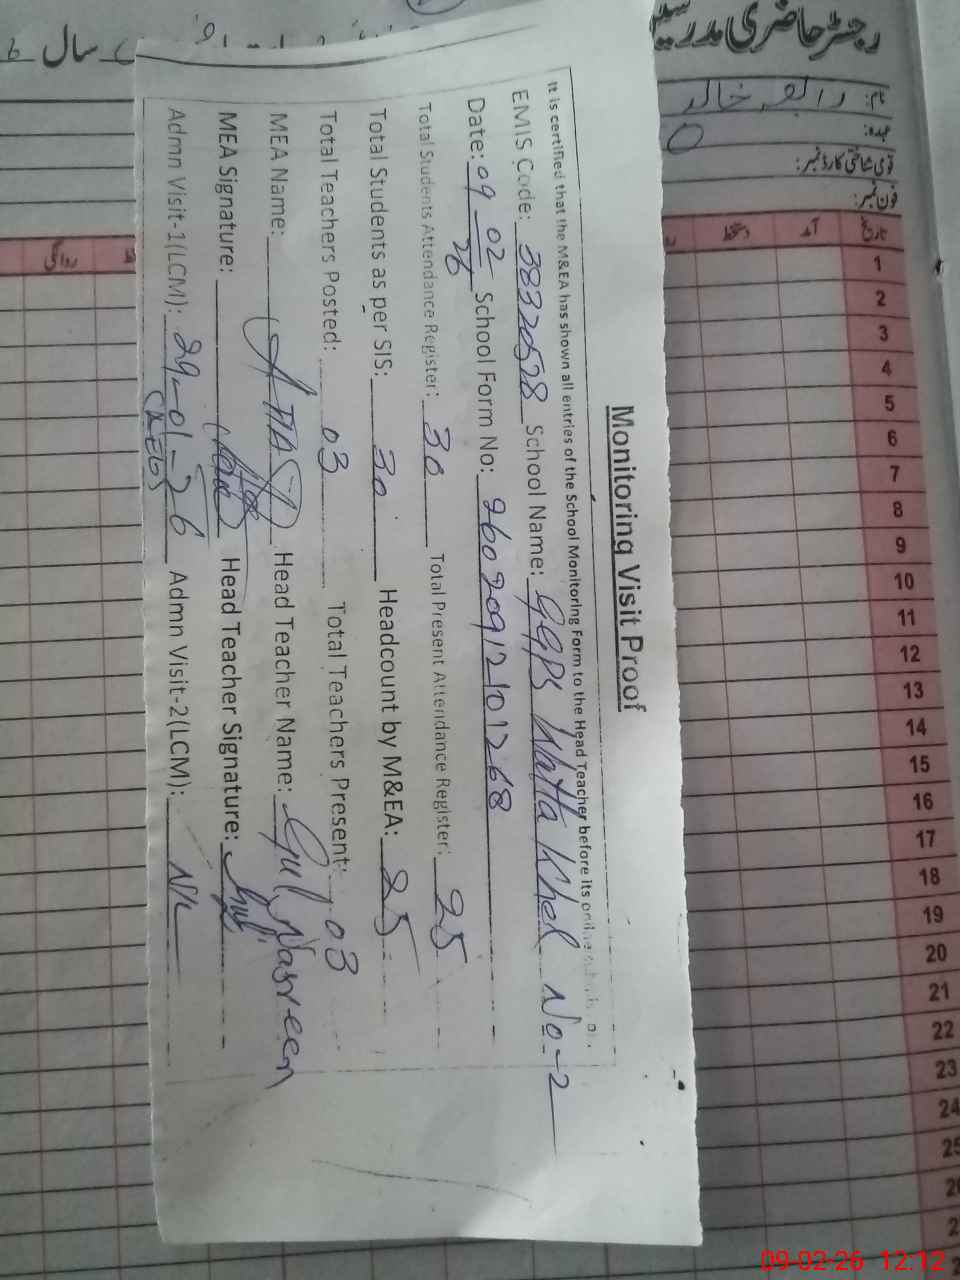 رجسٹر حاضری مدرسین
سال
نام: رابعہ خالد
عہدہ:
قومی شناختی کارڈ نمبر:
فون نمبر:
تاریخ آمد دستخط روانگی
1
2
3
4
5
6
7
8
9
10
11
12
13
14
15
16
17
18
19
20
21
22
23
24
25
Monitoring Visit Proof
It is certified that the M&EA has shown all entries of the School Monitoring Form to the Head Teacher before its online
EMIS Code: 38320528 School Name: GGPS Watta Khel No-2
Date: 09 02 26 School Form No: 26020912101268
Total Students Attendance Register: 30 Total Present Attendance Register: 25
Total Students as per SIS: 30 Headcount by M&EA: 25
Total Teachers Posted: 03 Total Teachers Present: 03
MEA Name: Head Teacher Name: Gul Nasreen
MEA Signature: Head Teacher Signature:
Admn Visit-1(LCM): 29-01-26 Admn Visit-2(LCM): Nil
09-02-26 12:12